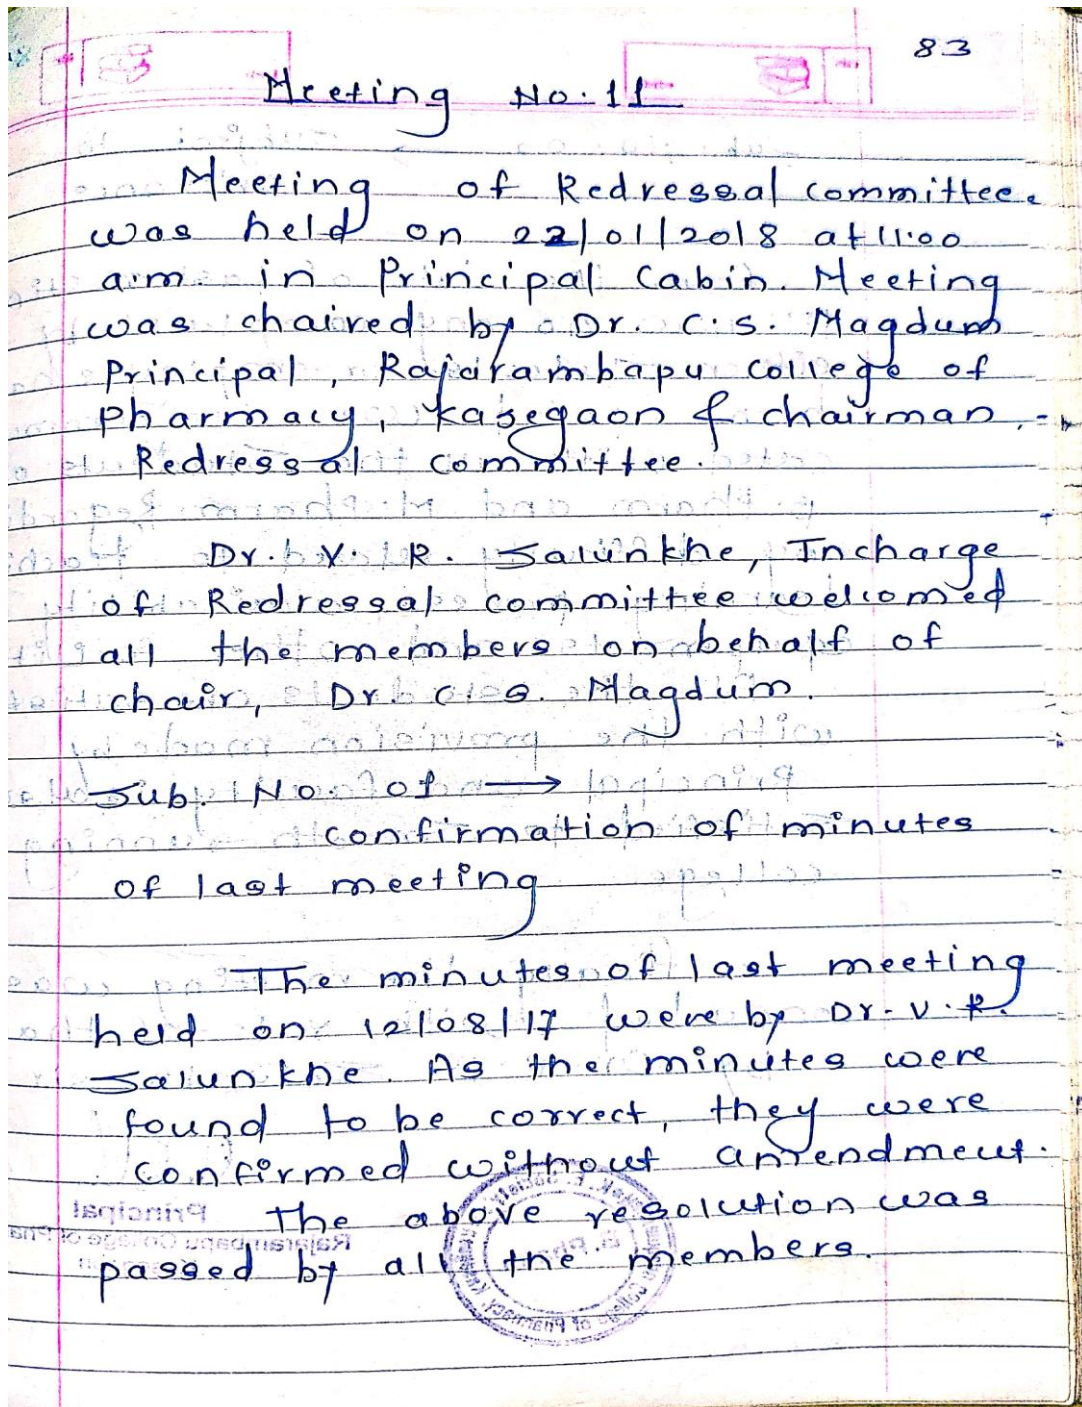 83
Meeting No. 11
Meeting of Redressal committee.
was held on 22/01/2018 at 11:00
a.m. in Principal Cabin. Meeting
was chaired by Dr. C. S. Magdum
Principal, Rajarambapu college of
pharmacy, Kasegaon & chairman,
Redressal committee.
Dr. V. R. Salunkhe, Incharge
of Redressal committee welcomed
all the members on behalf of
chair, Dr. C. S. Magdum.
Sub. No. 01 →
confirmation of minutes
of last meeting
The minutes of last meeting
held on 12/08/17 were by Dr. V. R.
Salunkhe. As the minutes were
found to be correct, they were
confirmed without amendment.
The above resolution was
passed by all the members.